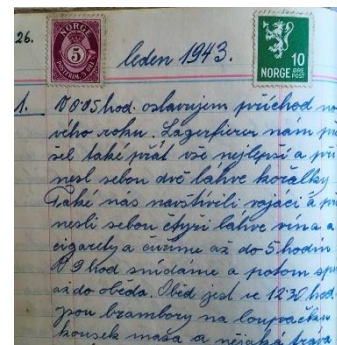 26.
NORGE
5
POSTFRIM. 5 ØRE
leden 1943.
10
NORGE ØRE POST
1. V 0.05 hod. oslavujem příchod no
vého roku. Lagerfierer nám při
šel také přát vše nejlepší a při
nesl sebou dvě lahve kořalky
Také nás navštívili vojáci a při
nesli sebou čtyři lahve vína a
cigarety a čuříme až do 5 hodin
V 9 hod snídáme a potom spí
až do oběda. Oběd jest ve 12.30 hod.
jsou brambory na loupačku
kousek masa a nějaká tráva